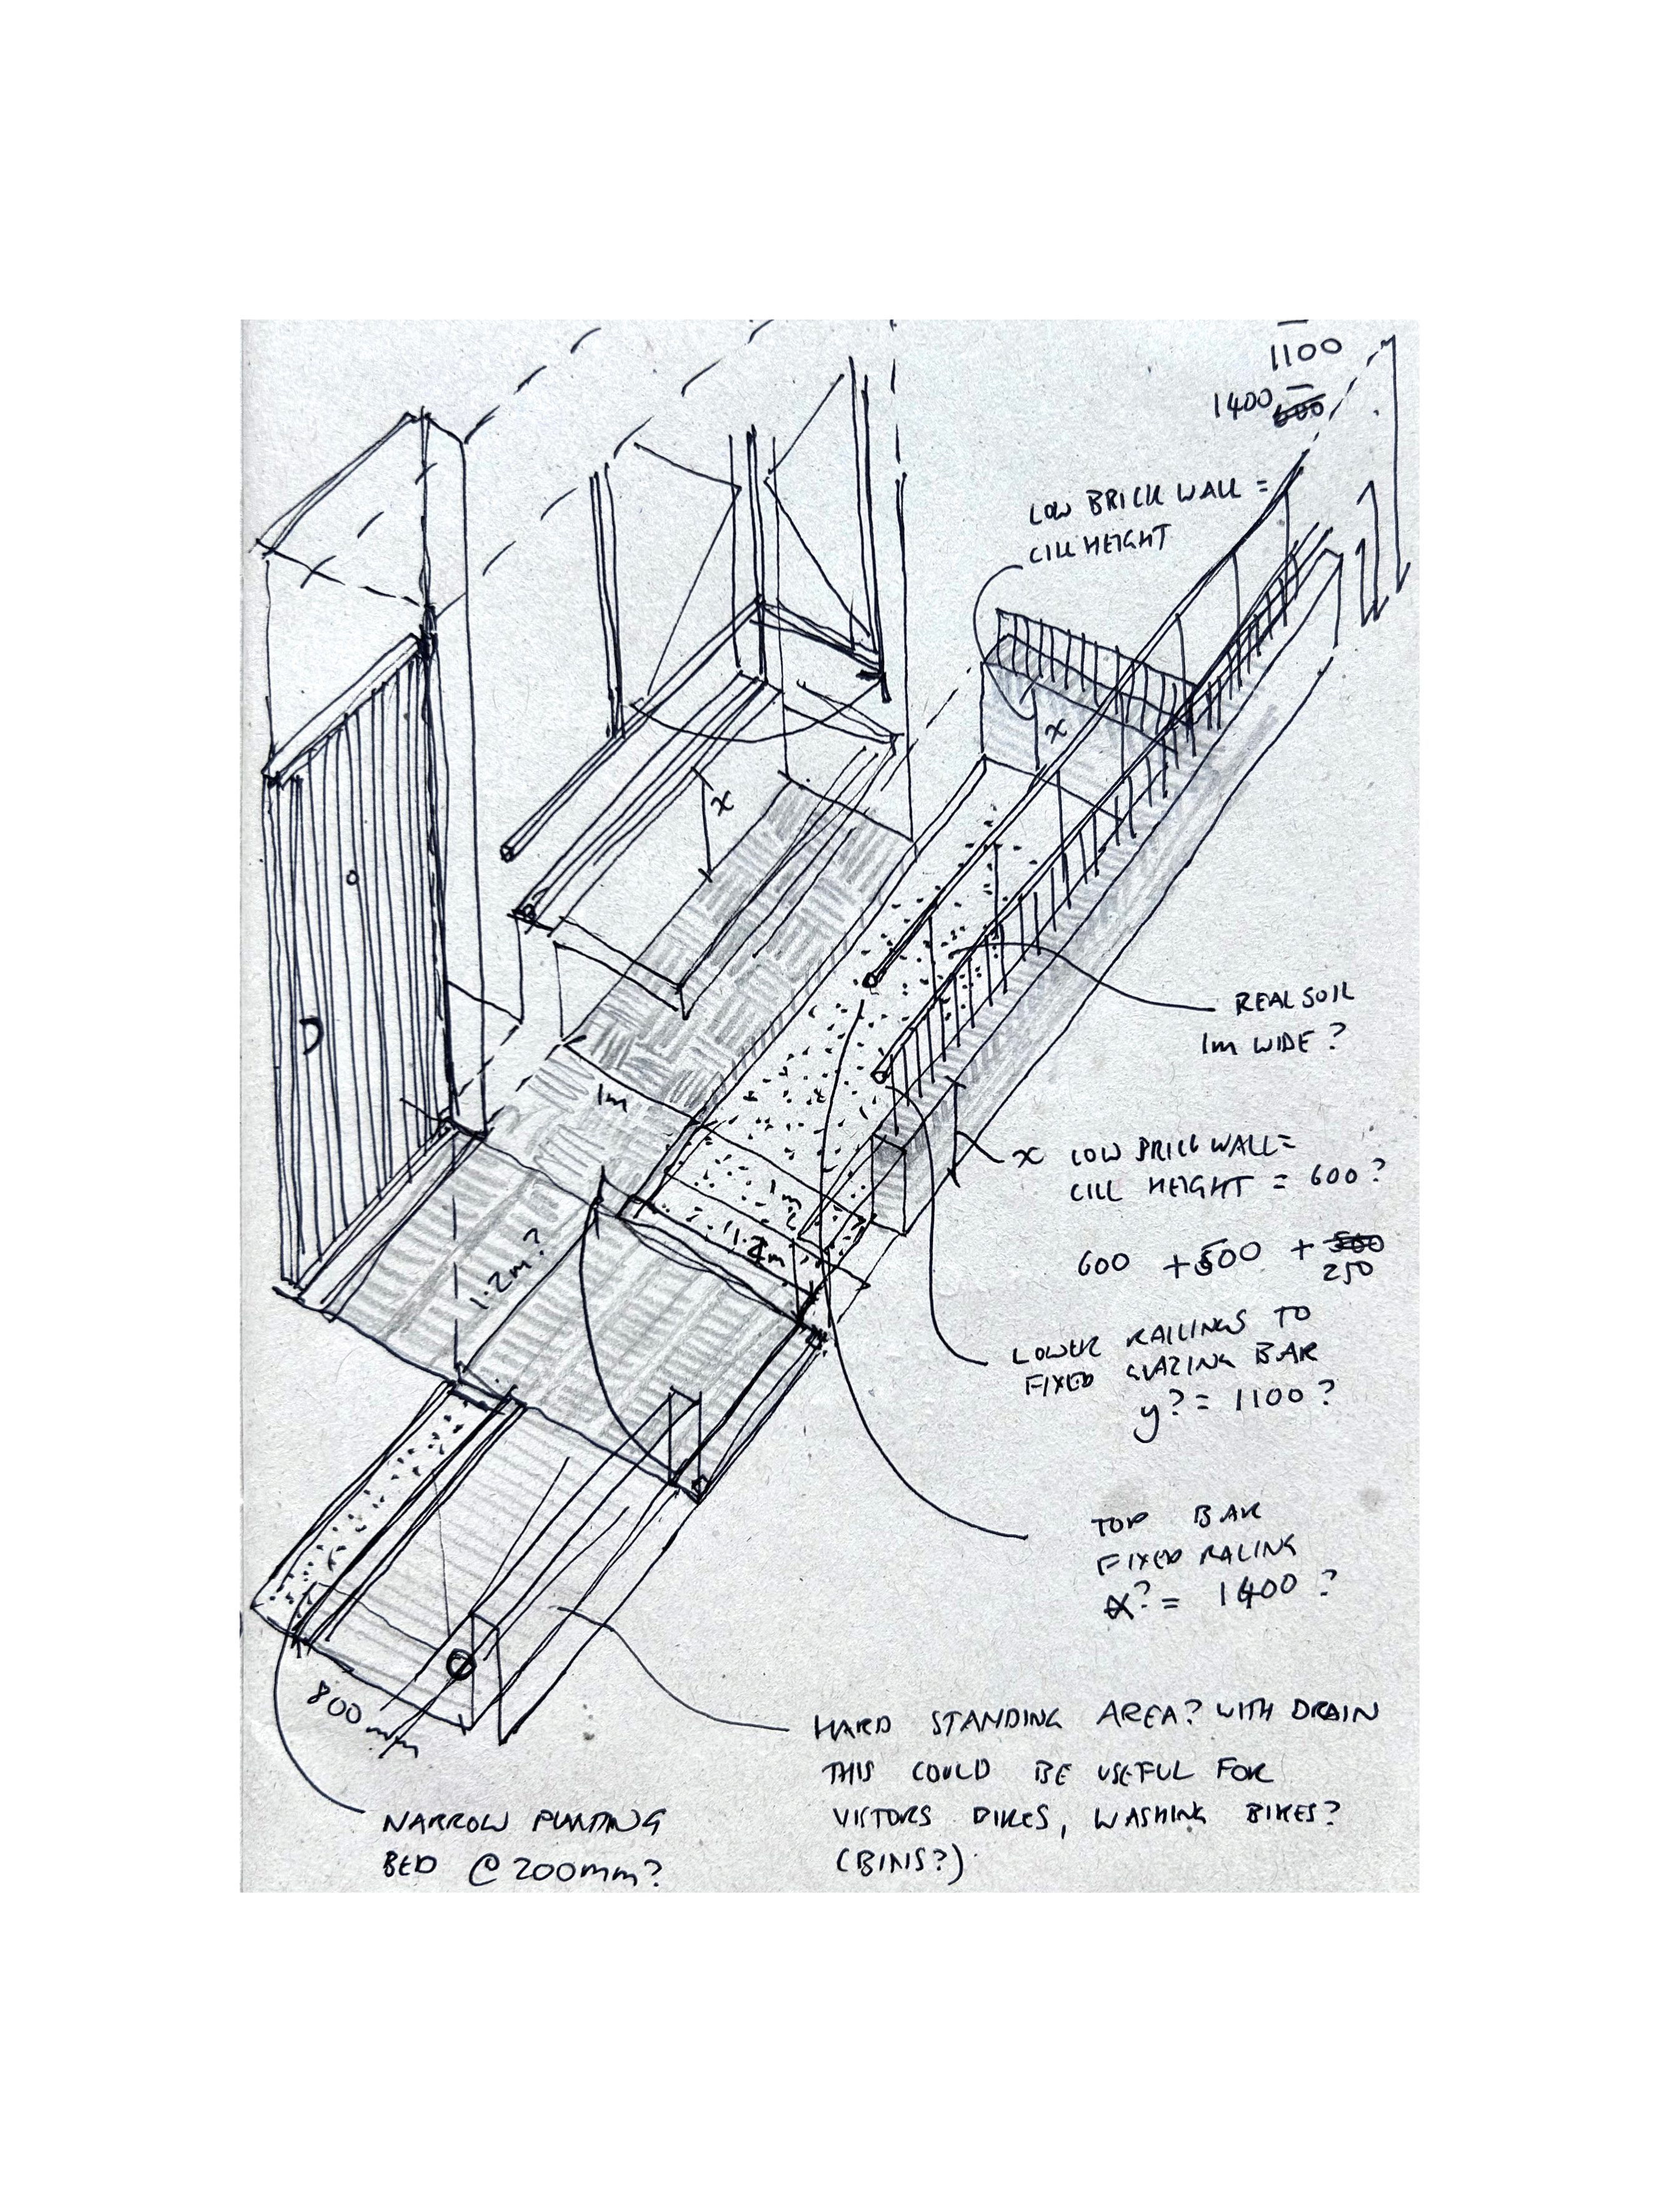 1100
1400
LOW BRICK WALL =
CILL HEIGHT
x
x
REAL SOIL
1m WIDE ?
1m
x LOW BRICK WALL =
CILL HEIGHT = 600 ?
1m
1.2m
1.2m?
600 + 500 +
250
LOWER RAILINGS TO
FIXED GLAZING BAR
y? = 1100 ?
TOP BAR
FIXED RALING
? = 1400 ?
800mm
HARD STANDING AREA? WITH DRAIN
THIS COULD BE USEFUL FOR
VISTORS BIKES, WASHING BIKES?
(BINS?)
NARROW PLANTING
BED @ 200mm?